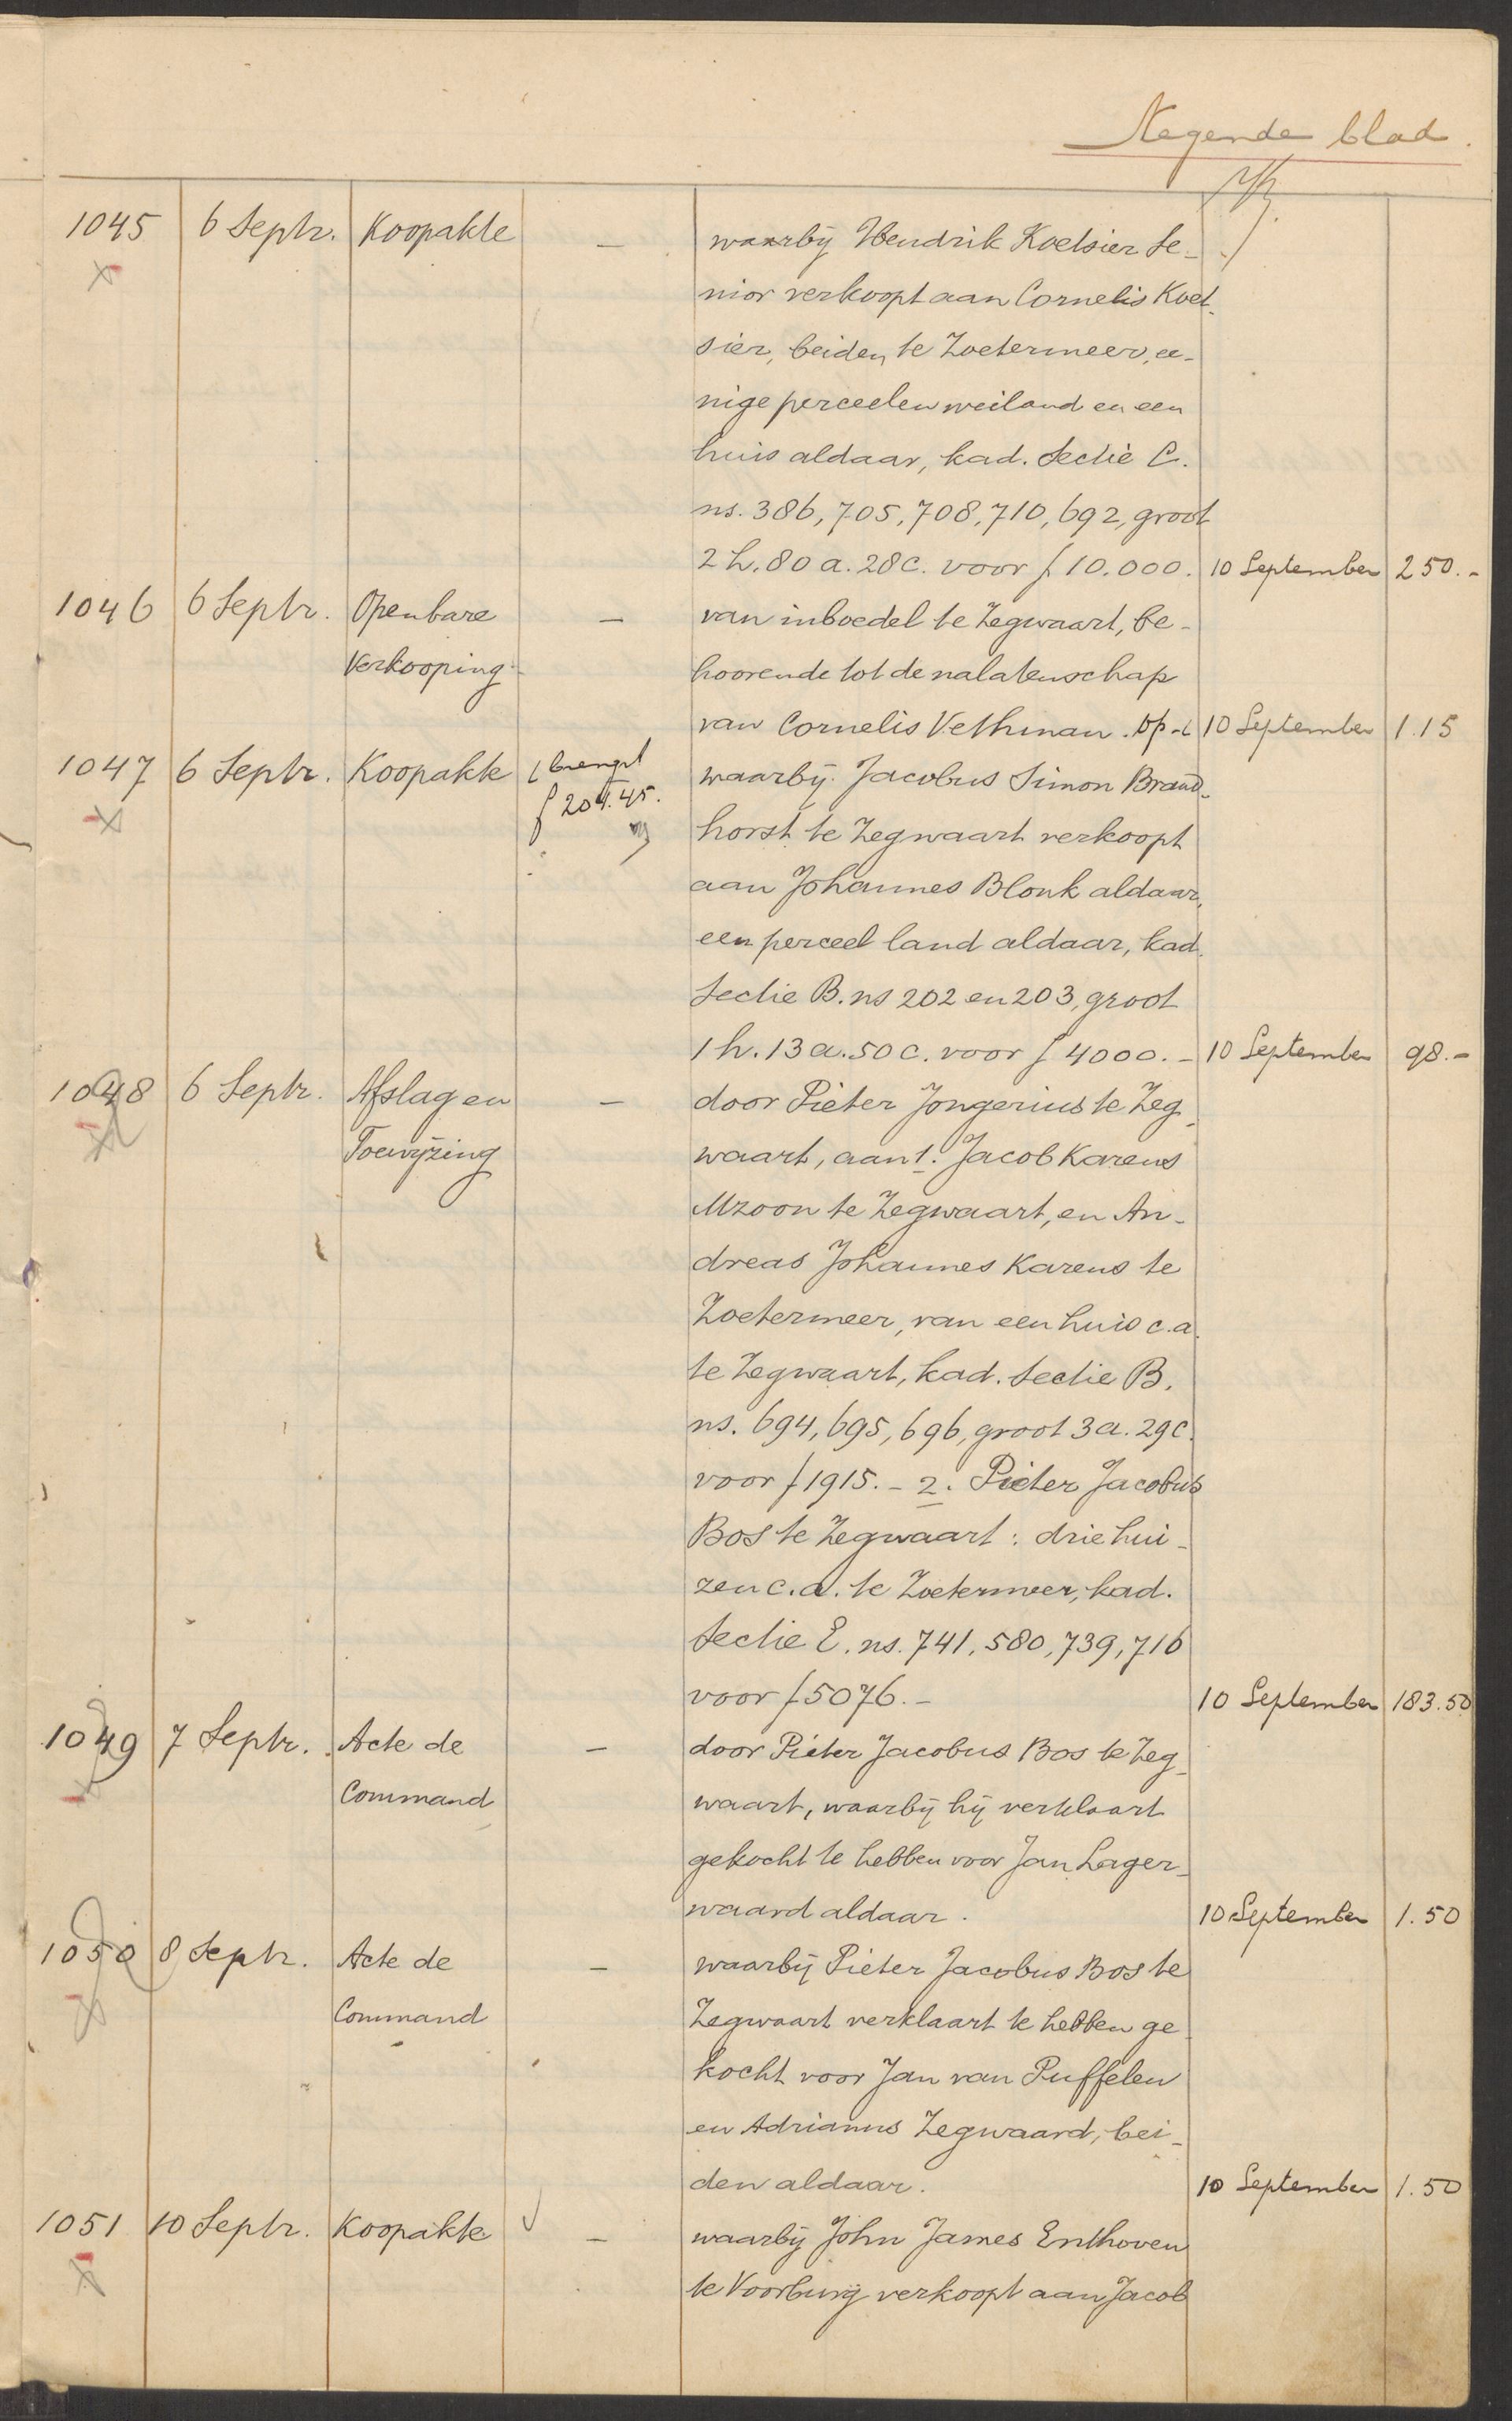 Negende blad.
1045 6 Septr. Koopakte — waarbij Hendrik Koetsier Se-
nior verkoopt aan Cornelis Koet-
sier, beiden te Zoetermeer, ee-
nige perceelen weiland en een
huis aldaar, kad. Sectie C.
ns. 386, 705, 708, 710, 692, groot
2 h. 80 a. 28 c. voor ƒ 10.000. 10 September 250.-
1046 6 Septr. Openbare — van inboedel te Zegwaart, be-
Verkooping hoorende tot de nalatenschap
van Cornelis Vethman. 10 September 1.15
1047 6 Septr. Koopakte waarbij Jacobus Simon Brand-
ƒ 204.45.
horst te Zegwaart verkoopt
aan Johannes Blonk aldaar,
een perceel land aldaar, kad.
Sectie B. ns 202 en 203, groot
1 h. 13 a. 50 c. voor ƒ 4000.- 10 September 98.-
1048 6 Septr. Afslag en — door Pieter Jongerius te Zeg-
Toewijzing waart, aan 1. Jacob Karens
Mzoon te Zegwaart, en An-
dreas Johannes Karens te
Zoetermeer, van een huis c.a.
te Zegwaart, kad. Sectie B.
ns. 694, 695, 696, groot 3 a. 29 c.
voor ƒ 1915.- 2. Pieter Jacobus
Bos te Zegwaart: drie hui-
zen c.a. te Zoetermeer, kad.
Sectie E. ns. 741, 580, 739, 716
voor ƒ 5076.- 10 September 183.50
1049 7 Septr. Acte de — door Pieter Jacobus Bos te Zeg-
Command waart, waarbij hij verklaart
gekocht te hebben voor Jan Lager-
waard aldaar. 10 September 1.50
1050 8 Septr. Acte de — waarbij Pieter Jacobus Bos te
Command Zegwaart verklaart te hebben ge
kocht voor Jan van Puffelen
en Adrianus Zegwaard, bei-
den aldaar. 10 September 1.50
1051 10 Septr. Koopakte — waarbij John James Enthoven
te Voorburg verkoopt aan Jacob